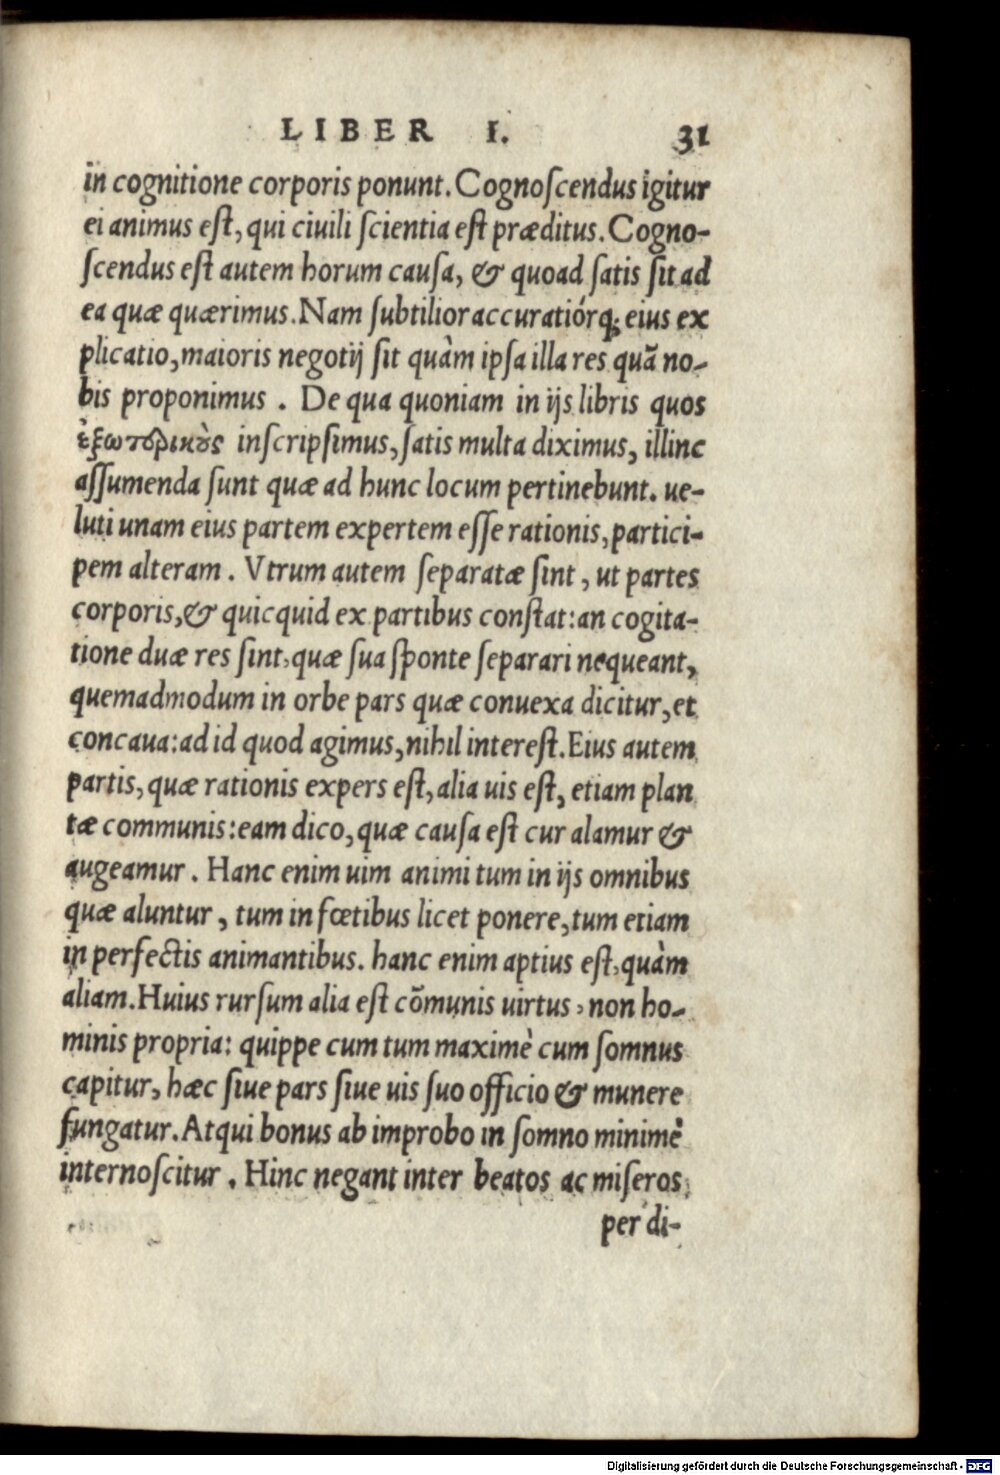 LIBER I. 31
in cognitione corporis ponunt. Cognoſcendus igitur
ei animus eſt, qui ciuili ſcientia eſt præditus. Cogno-
ſcendus eſt autem horum cauſa, & quoad ſatis ſit ad
ea quæ quærimus. Nam ſubtilior accuratiórq; eius ex
plicatio, maioris negotij ſit quàm ipſa illa res quã no-
bis proponimus . De qua quoniam in ijs libris quos
ἐξωτερικοὺς inſcripſimus, ſatis multa diximus, illinc
aſſumenda ſunt quæ ad hunc locum pertinebunt. ue-
luti unam eius partem expertem eſſe rationis, partici-
pem alteram . Vtrum autem ſeparatæ ſint , ut partes
corporis, & quicquid ex partibus conſtat: an cogita-
tione duæ res ſint, quæ ſua ſponte ſeparari nequeant,
quemadmodum in orbe pars quæ conuexa dicitur, et
concaua: ad id quod agimus, nihil intereſt. Eius autem
partis, quæ rationis expers eſt, alia uis eſt, etiam plan
tæ communis: eam dico, quæ cauſa eſt cur alamur &
augeamur . Hanc enim uim animi tum in ijs omnibus
quæ aluntur , tum in fœtibus licet ponere, tum etiam
in perfectis animantibus. hanc enim aptius eſt, quàm
aliam. Huius rurſum alia eſt cõmunis uirtus , non ho-
minis propria: quippe cum tum maximè cum ſomnus
capitur, hæc ſiue pars ſiue uis ſuo officio & munere
fungatur. Atqui bonus ab improbo in ſomno minimè
internoſcitur . Hinc negant inter beatos ac miſeros
per di-
Digitalisierung gefördert durch die Deutsche Forschungsgemeinschaft - DFG